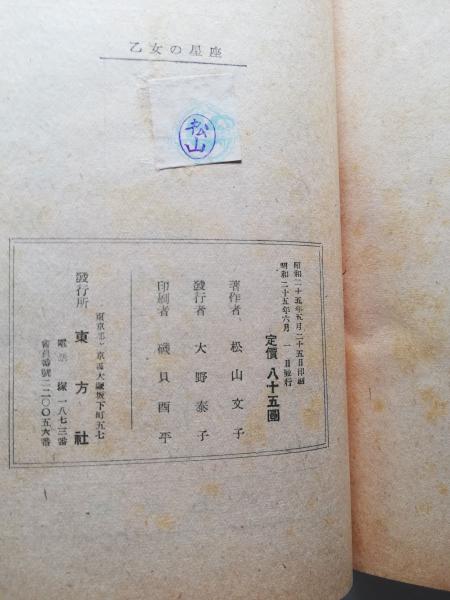 乙女の星座
松山
昭和二十五年五月二十五日印刷
昭和二十五年六月一日發行
定價 八十五圓
著作者 松山文子
發行者 大野泰子
印刷者 磯貝酉平
發行所 東方社
東京都文京區大塚坂下町五七
電話 塚 一八七三番
會員番號二二〇〇五六番